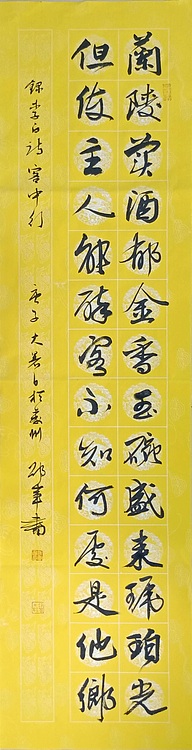 蘭陵美酒郁金香玉碗盛来琥珀光
但使主人能醉客不知何處是他鄉
錄李白詩客中行 庚子大暑日於蘇州 書